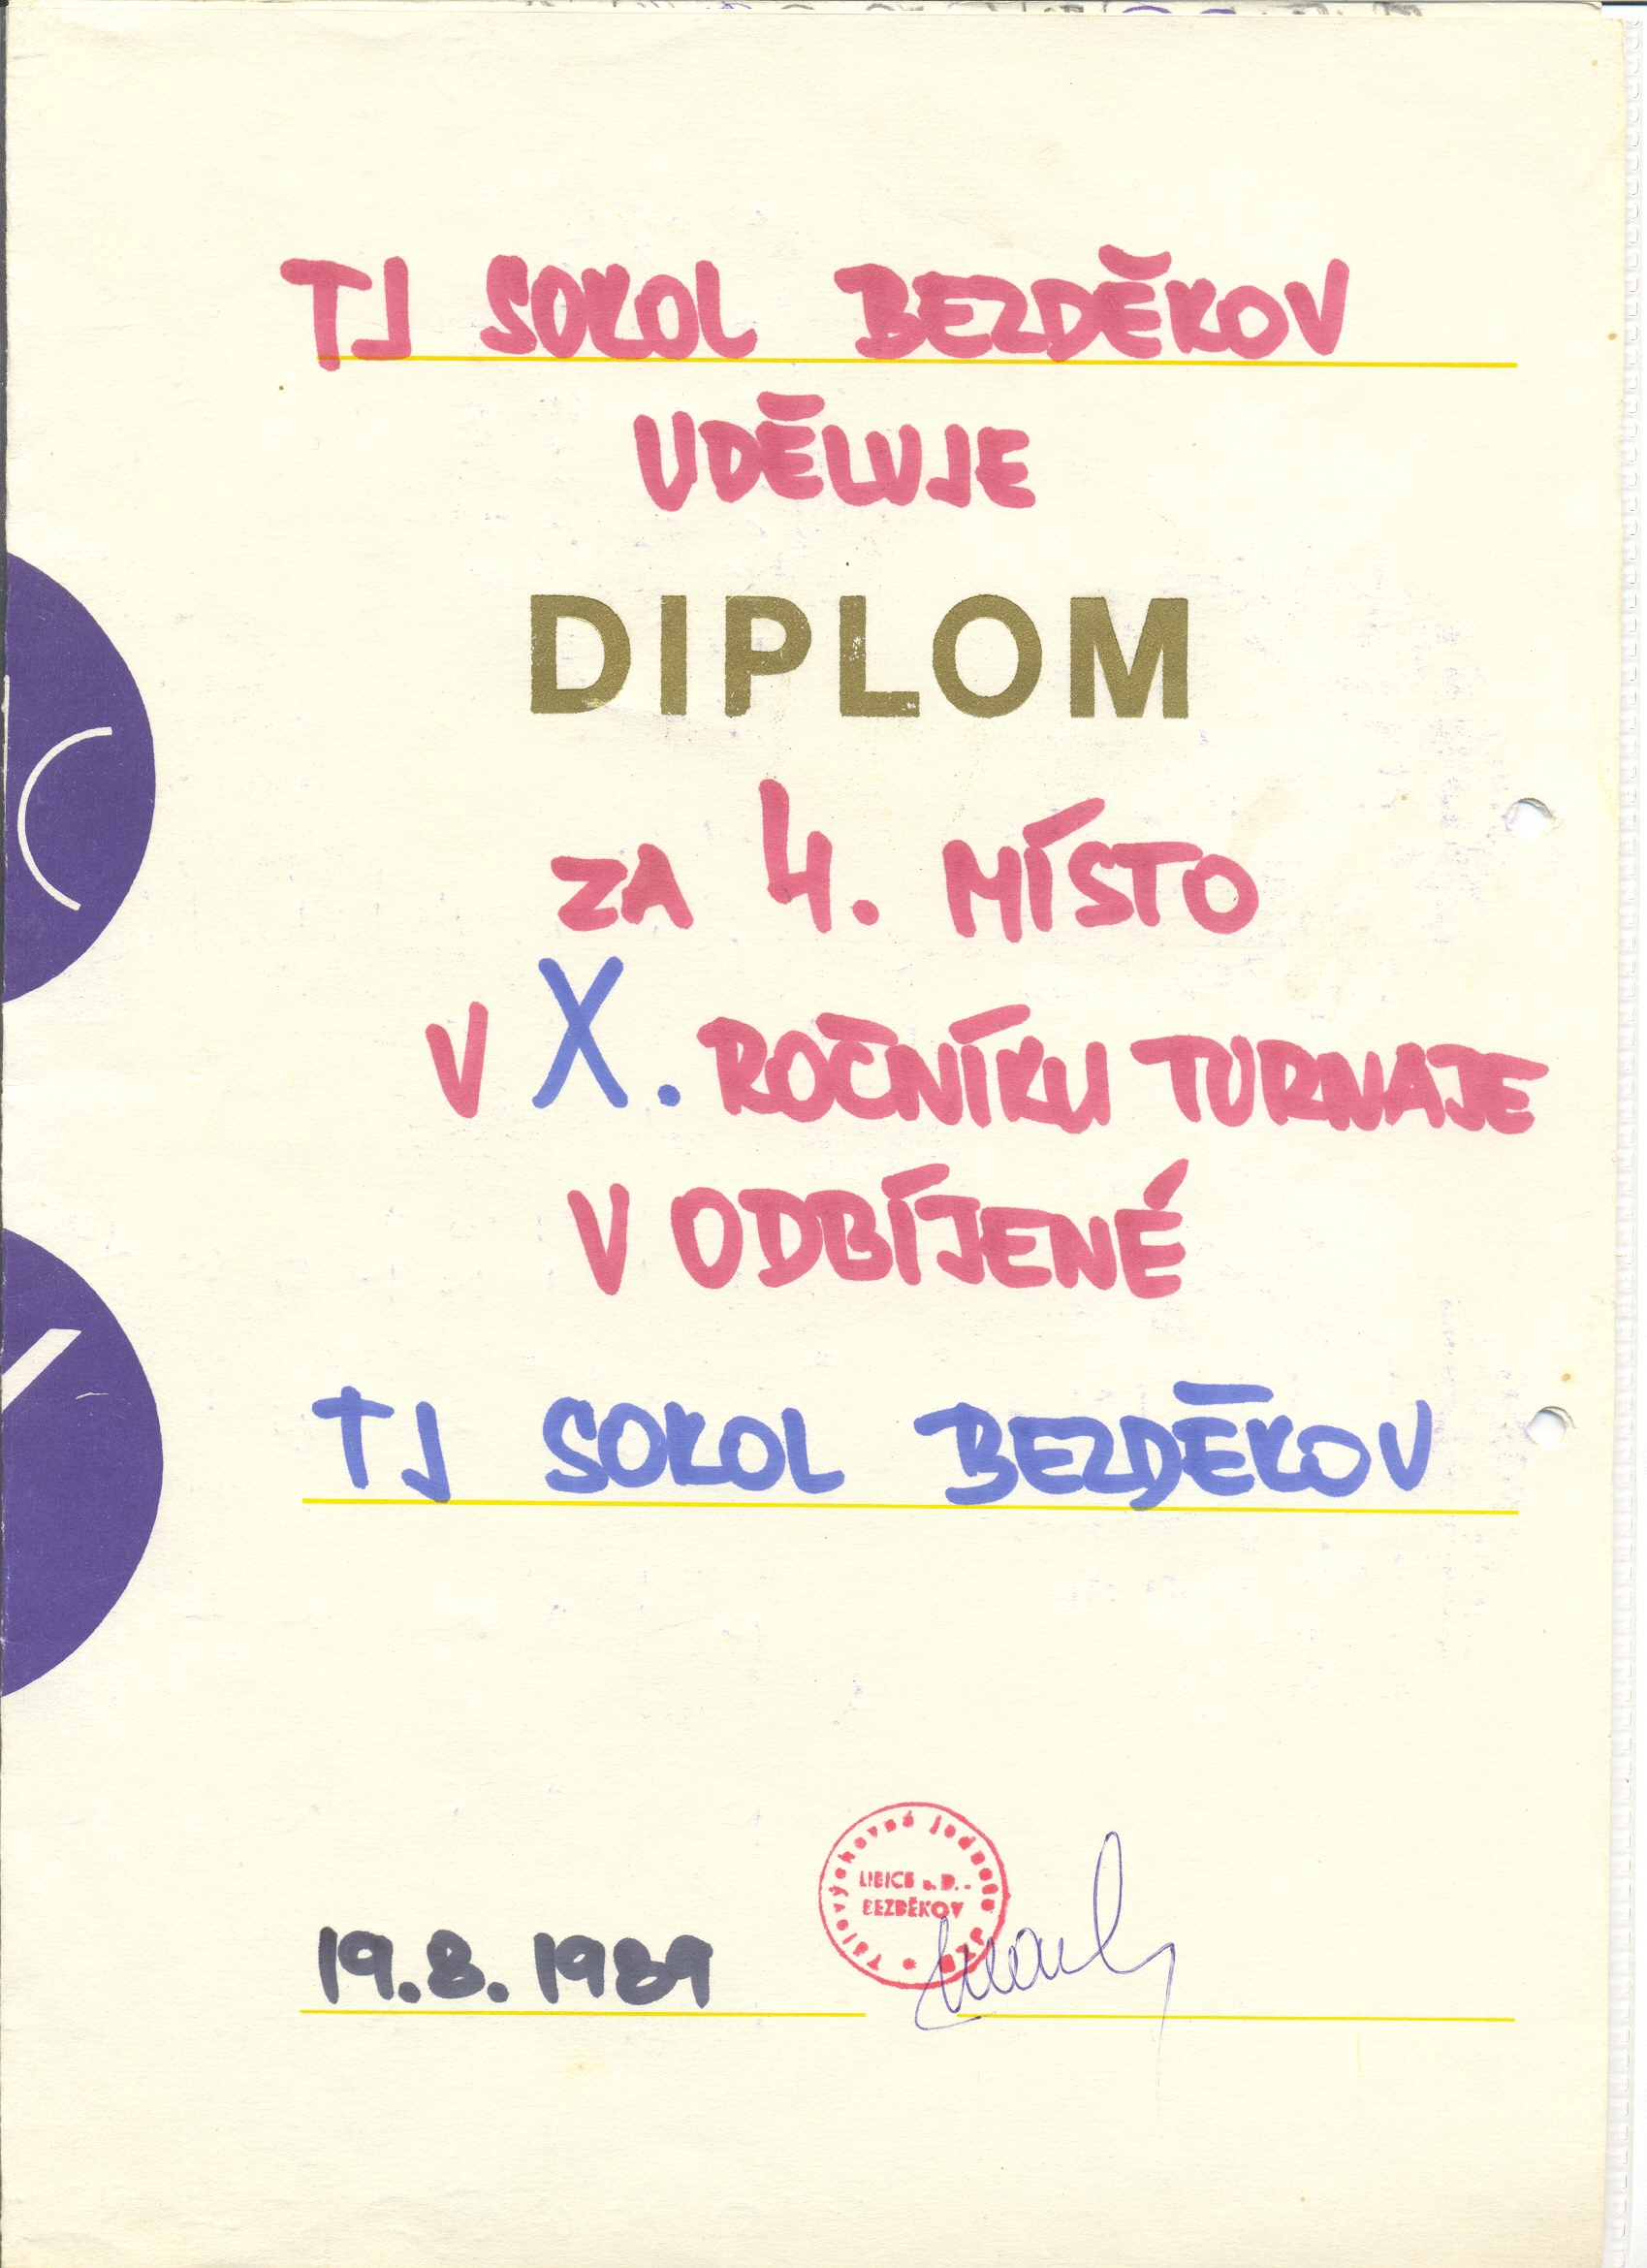 TJ SOKOL BEZDĚKOV
UDĚLUJE
DIPLOM
ZA 4. MÍSTO
V X. ROČNÍKU TURNAJE
V ODBÍJENÉ
TJ SOKOL BEZDĚKOV
Tělovýchovná jednota
LIBICE n.D.-
BEZDĚKOV
19.8.1989